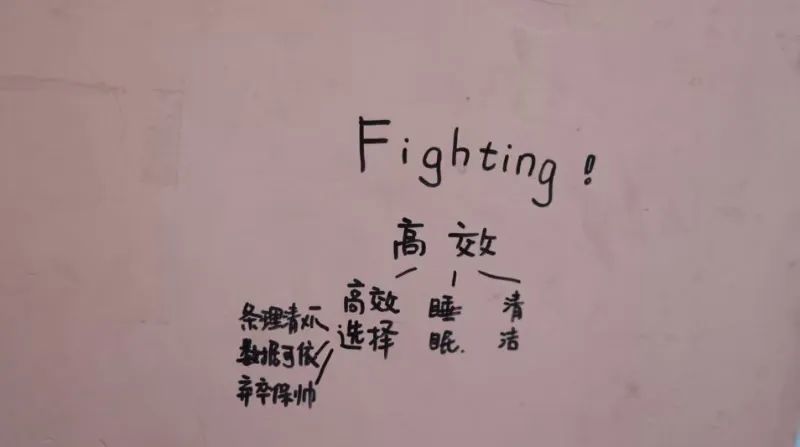 Fighting!
高效
高效选择
睡眠.
清洁
条理清爪
数据可依
弃卒保帅